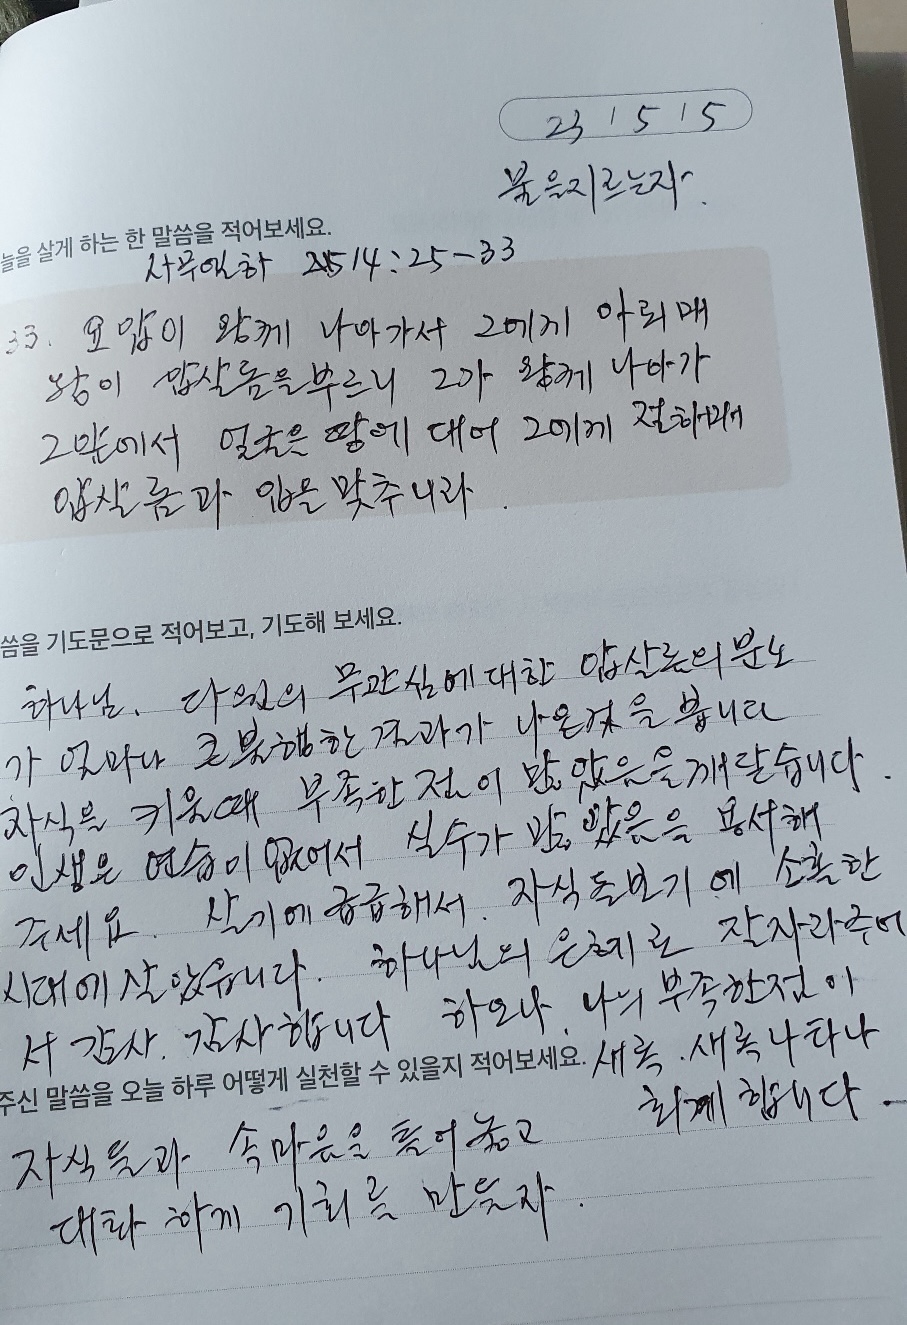 23 / 5 / 5
불을지르는자.
늘을 살게 하는 한 말씀을 적어보세요.
사무엘하 14:25-33
33. 요압이 왕께 나아가서 그에게 아뢰매
왕이 압살롬을부르니 그가 왕께 나아가
그앞에서 얼굴은 땅에 대어 그에게 절하매
압살롬과 입을 맞추니라.
씀을 기도문으로 적어보고, 기도해 보세요.
하나님. 다윗의 무관심에대한 압살롬의분노
가 얼마나 큰불행한결과가 나온것을 봅니다
자식을 키울때 부족한점이 많았음을깨달습니다.
인생은 연습이없어서 실수가 많았음을 용서해
주세요. 살기에 급급해서. 자식돌보기에 소홀한
시대에살았습니다. 하나님의 은혜로 잘자라주어
서 감사. 감사합니다 하오나. 나의 부족한점이
주신 말씀을 오늘 하루 어떻게 실천할 수 있을지 적어보세요. 새록.새록나타나
회계합니다.
자식들과 속마음을 틀어놓고
대화 하게 기회를 만들자.